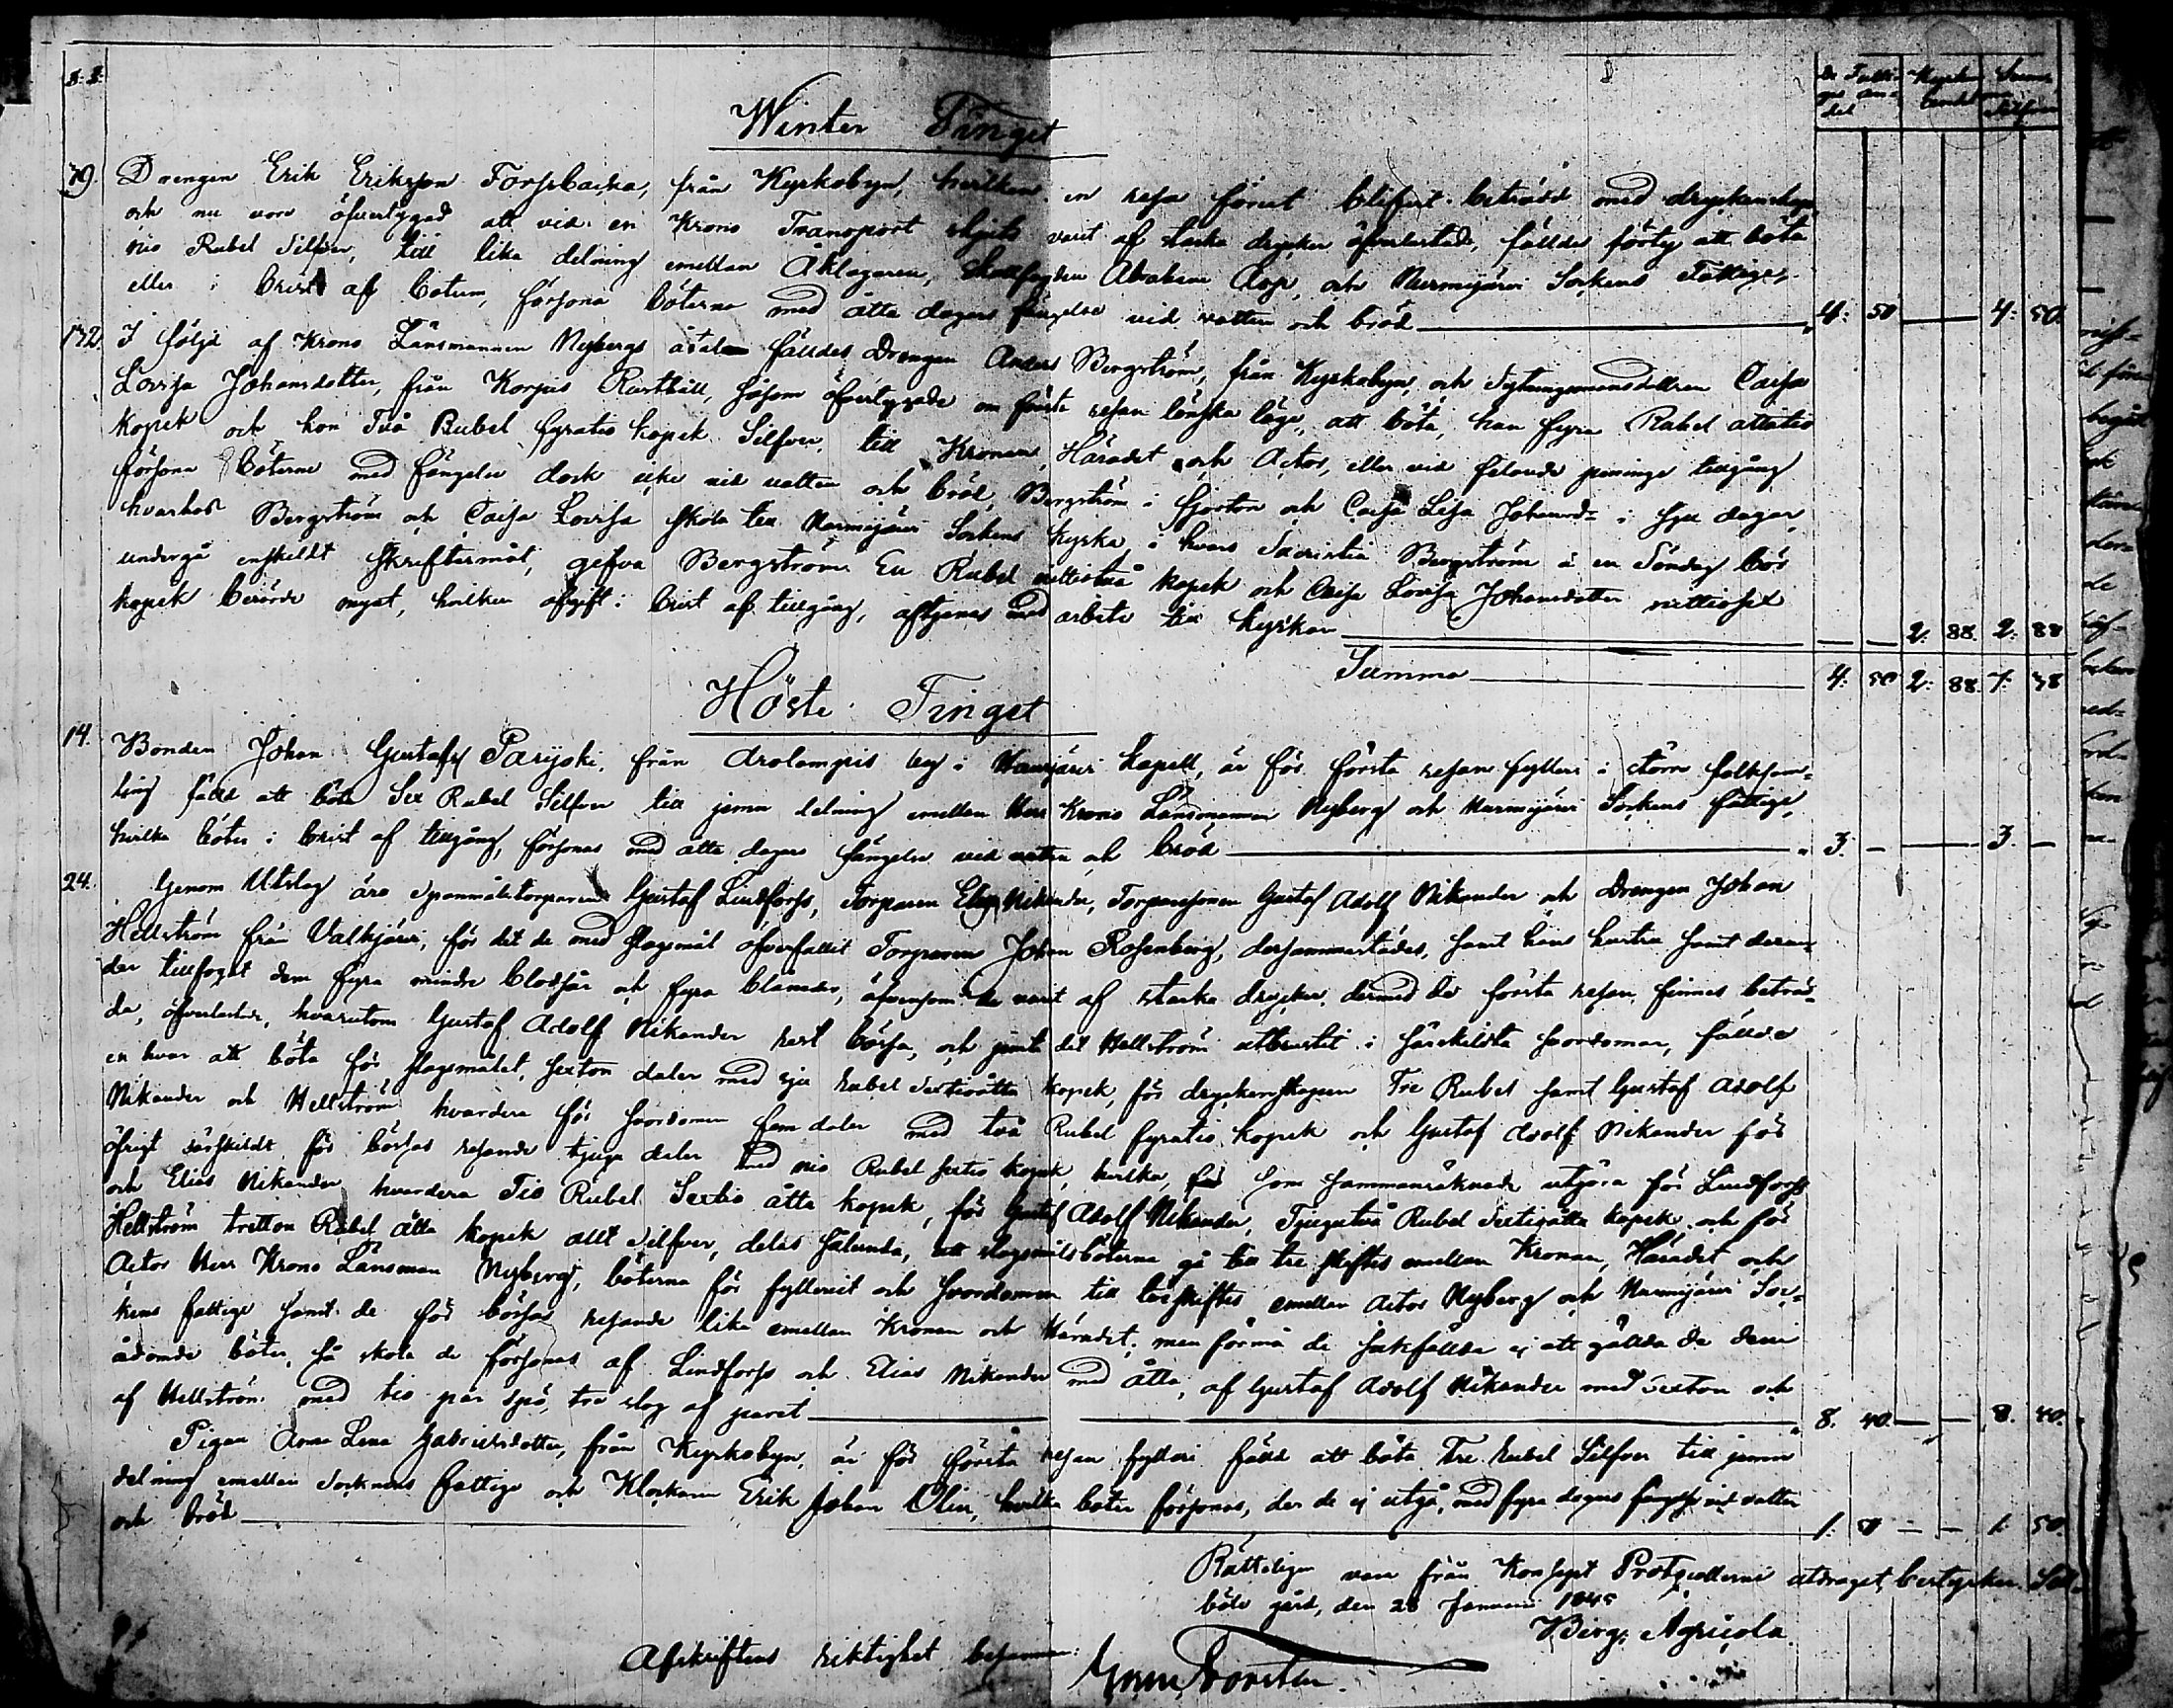 §.§. De Fattigas andel Kyrkan Summa Silfver
Winter Tinget
79. Drengen Erik Eriksson Forssbacka, från Kyrkobyn, hvilken en resa förut blifvit beträdd med dryckenskap
och nu vore öfvertygad att vid en Krono Transport skjuts varit af starka drycker öfverlastad, fälldes förty att böta
nio Rubel Silfver, till lika delning emellan Åklagaren, Abraham och Nurmijärvi Sockens Fattige,
eller i brist af botum, försona böterna med åtta dagars fängelse vid vatten och bröd 4: 50 4: 50.
132. I följd af Krono Länsmannen Nybergs åtal fälldes Drengen Anders Bergström, från Kyrkobyn, och Caisa
Lovisa Johansdotter, från Korpis Rusthåll, såsom öfvertygade om första resan lönska läge, att böta, han fyra Rubel åttatio
kopek och hon Två Rubel fyratio kopek Silfver, till Kronan, Häradet och Actor, eller vid felande pennings tillgång
försona böterna med fängelse dock icke vid vatten och bröd, Bergström i fjorton och Caisa Lisa Johansd: i sju dagar,
hvarhos Bergström och Caisa Lovisa skola till Nurmijärvi Sockens kyrka i hvars Sacristia Bergström å en Söndag bör
undergå enskildt skriftermål, gifva Bergström En Rubel nittiotvå kopek och Caisa Lovisa Johansdotter nittiosex
kopek berörde mynt, hvilken afgift i brist af tillgång, aftjenas med arbete till kyrkan 2: 88. 2: 88
Summa 4: 50 2: 88. 7: 38
Höste Tinget
14. Bonden Johan Gustafs från by i kapell, är för första resan fylleri i större folksam-
ling fälld att böta Sex Rubel Silfver till jemn delning emellan Herr Krono Länsmannen Nyberg och Nurmijärvi Sockens fattige,
hvilka böter i brist af tillgång, försonas med åtta dagars fängelse vid vatten och bröd 3. 3.
24. Genom Utslag äro Spanmålstorparen Gustaf Lindforss, Torparen Elias Nikander, Torparesonen Gustaf Adolf Nikander och Drengen Johan
Hellström från Valkjärvi, för det de med slagsmål öfverfallit Torparen Johan Rosenberg, dersammastädes, samt hans hustru samt derun-
der tillfogat dem fyra mindre blodsår och fyra blånader, äfvensom de varit af starka drycker, dermed de första resan finnes beträd-
da, öfverlastade, hvarutom Gustaf Adolf Nikander häst börsa, och jemte det Hellström utbrustit i särskildta svordomar, fällde
en hvar att böta för slagsmålet, sexton daler med sju rubel sextioåtta kopek, för dryckenskapen Tre Rubel samt Gustaf Adolf
Nikander och Hellström hvardera för svordomen fem daler med två Rubel fyratio kopek och Gustaf Adolf Nikander för
öfrigt särskildt för börsas resande tjugu daler med nio Rubel sextio kopek, hvilka, som sammanräknade utgöra för Lindforss
och Elias Nikander hvardera Tio Rubel Sextio åtta kopek, för Gustaf Adolf Nikander, Tjugutvå Rubel Sextioåtta kopek och för
Hellström tretton Rubel åtta kopek allt silfver, delas sålunda, att slagsmålsböterna gå till tre skiftes emellan Kronan, Häradet och
Actor Herr Krono Länsman Nyberg, böterna för fylleriet och svordomen till tveskiftes emellan Actor Nyberg och Nurmijärvi Soc-
kens fattige samt de för börsas resande lika emellan Kronan och Häradet; men förmå de sakfällda ej att gällda de dem
ådömde böter, så skola de försonas af Lindforss och Elias Nikander med åtta, af Gustaf Adolf Nikander med sexton och
af Hellström med tio par spö, tre slag af paret 8. 40. 8. 40.
Pigan Anna Lena Gabrielsdotter, från Kyrkobyn, är för första resan fylleri fälld att böta Tre Rubel Silfver till jemn
delning emellan Socknens fattige och Klockaren Erik Johan Olin, hvilka böter försonas, der de ej utgå, med fyra dagars fängelse vid vatten
och bröd 1: 50 1. 50.
Rätteligen vara från Koncept Protocollerne utdraget, bestyrker.
gård, den 28 Januarii 1845
Birg: Agricola.
Afskriftens riktighet